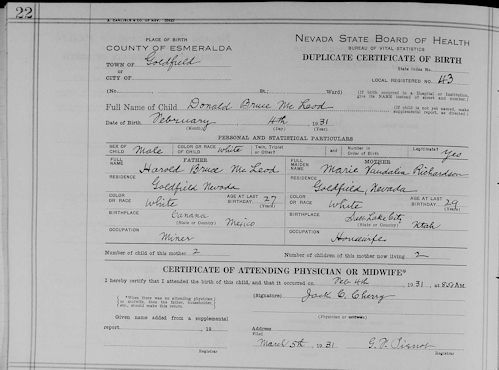 22
PLACE OF BIRTH
COUNTY OF ESMERALDA
TOWN OF Goldfield
or
CITY OF
NEVADA STATE BOARD OF HEALTH
BUREAU OF VITAL STATISTICS
DUPLICATE CERTIFICATE OF BIRTH
State Index No.
LOCAL REGISTERED NO. 43
(No. St.; Ward) (If birth occurred in a Hospital or Institution, give its NAME instead of street and number.)
Full Name of Child Donald Bruce McLeod (If child is not yet named, make supplemental report, as directed)
Date of Birth February 4th 1931
(Month) (Day) (Year)
PERSONAL AND STATISTICAL PARTICULARS
SEX OF CHILD Male COLOR OR RACE OF CHILD White Twin, Triplet or Other? and Number in Order of Birth Legitimate? Yes
FATHER MOTHER
FULL NAME Harold Bruce McLeod FULL MAIDEN NAME Marie Richardson
RESIDENCE Goldfield Nevada RESIDENCE Goldfield, Nevada
COLOR OR RACE White AGE AT LAST BIRTHDAY 27 (Years) COLOR OR RACE White AGE AT LAST BIRTHDAY 29 (Years)
BIRTHPLACE Mexico (State or Country) BIRTHPLACE Salt Lake City, Utah (State or Country)
OCCUPATION Miner OCCUPATION Housewife
Number of child of this mother 2 Number of children of this mother now living 2
CERTIFICATE OF ATTENDING PHYSICIAN OR MIDWIFE*
I hereby certify that I attended the birth of this child, and that it occurred on Feb 4th, 1931, at M.
*When there was no attending physician or midwife, then the father, householder, etc., should make this return.
(Signature) Jack C. Cherry
(Physician or midwife)
Given name added from a supplemental
report, 19 Address
Filed
March 5th, 1931 G. V.
Registrar Registrar